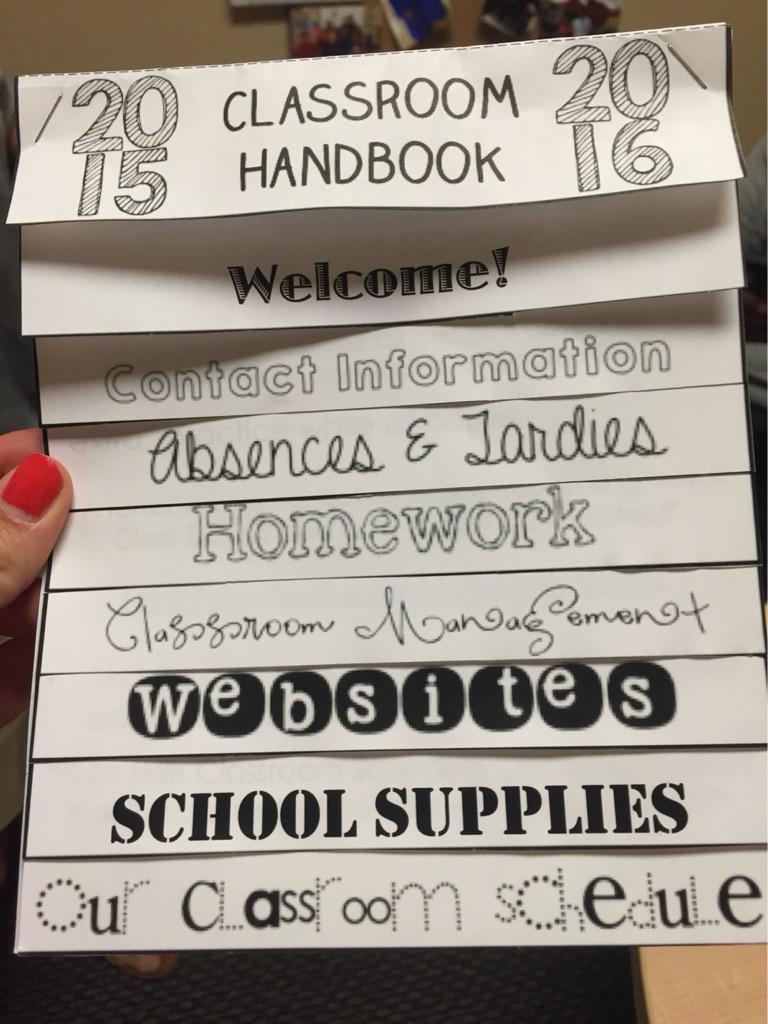 20 CLASSROOM 20
15 HANDBOOK 16
Welcome!
Contact Information
Absences & Tardies
Homework
Classroom Management
Websites
SCHOOL SUPPLIES
Our Classroom Schedule